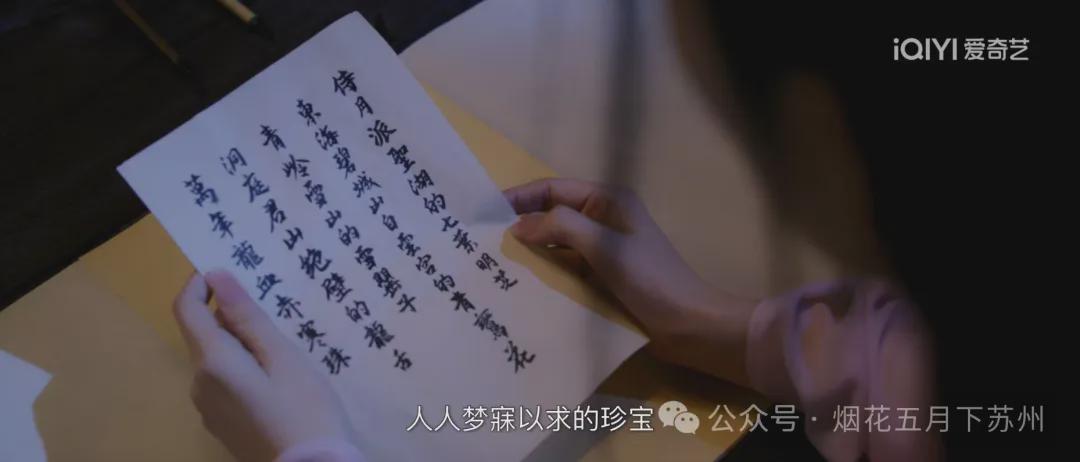 iQIYI 爱奇艺
侍月派聖湖的七葉明芝
東海碧城山白雲宮的青鸞花
青岭雪山的雪罌子
洞庭君山絕壁的龍舌
萬年龍血赤寒珠
人人梦寐以求的珍宝
公众号·烟花五月下苏州